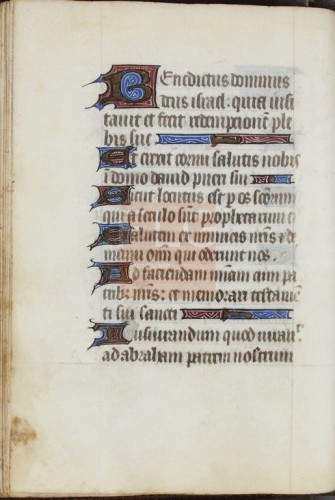 Benedictus dominus
deus israel: quia uisi
tauit et fecit redemptionē ple
bis sue
Et erexit cornu salutis nobis
ī domo dauid pueri sui
Sicut locutus est p os sctōrum
qui a seculo sūt prophetarum e
Salutem ex inimicis nr̄is ⁊ de
manu oīm qui oderunt nos.
Ad faciendam mīam cum pa
tribꝫ nr̄is: et memorari testamē
ti sui sancti
Iusiurandum quod iurauit
ad abraham patrem nostrum